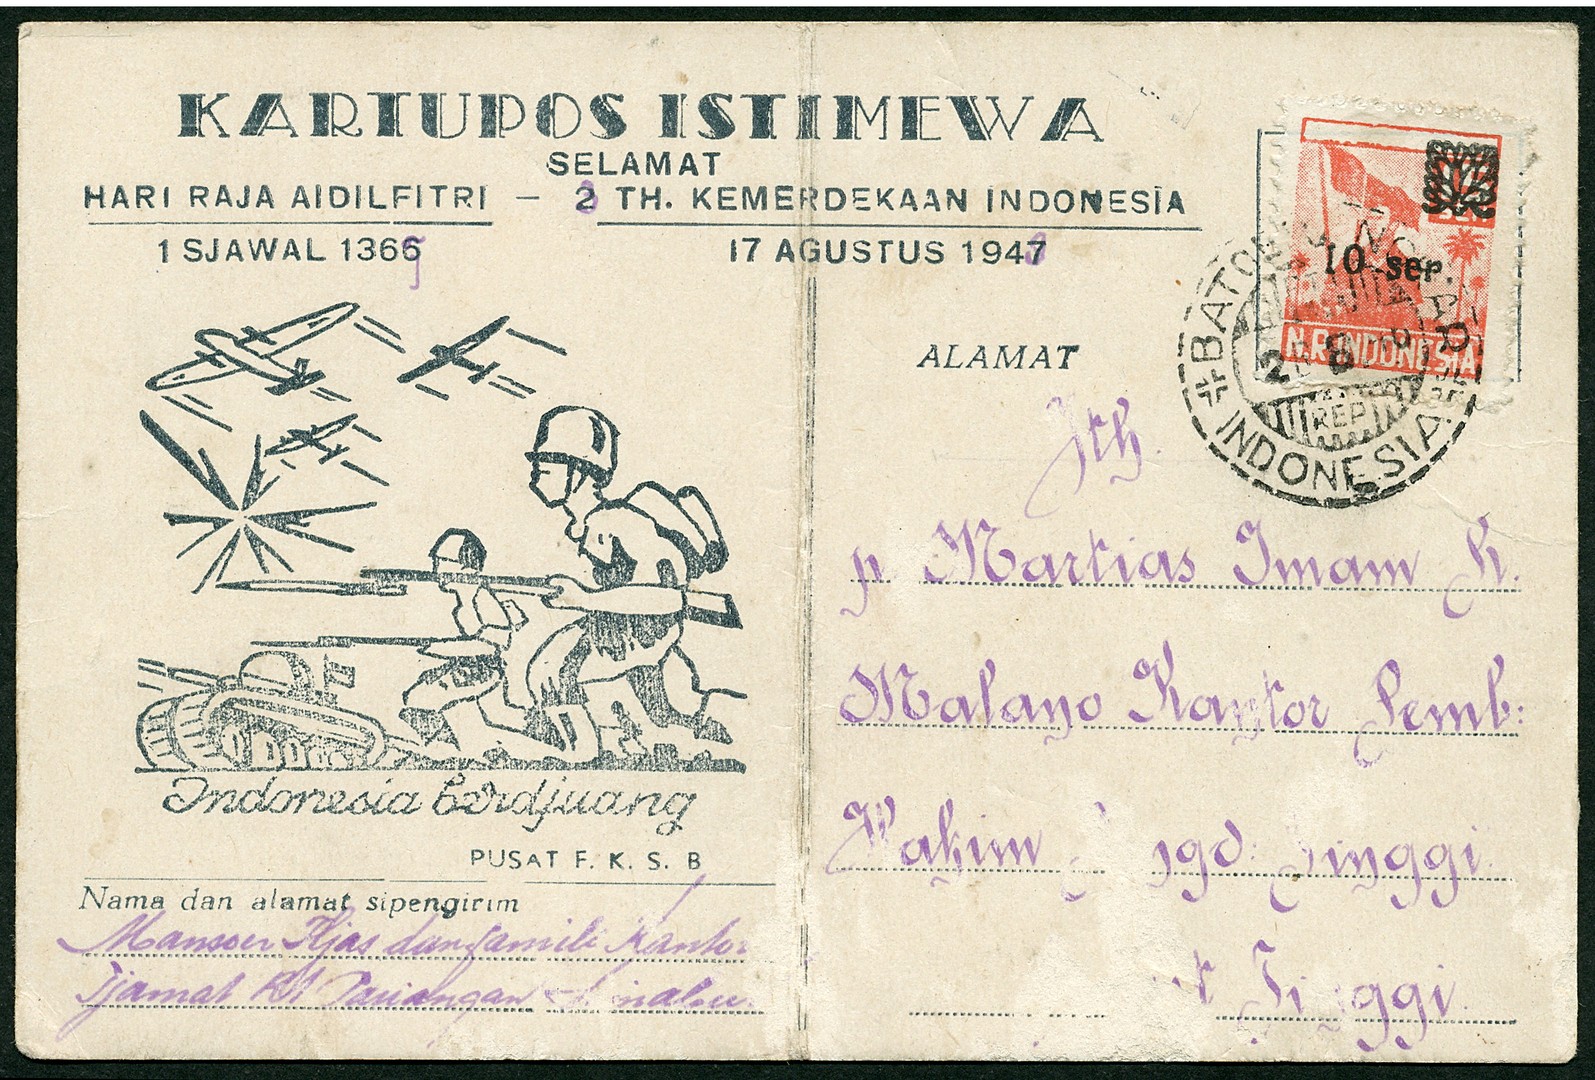 KARTUPOS ISTIMEWA
SELAMAT
HARI RAJA AIDILFITRI – 2 TH. KEMERDEKAAN INDONESIA
1 SJAWAL 1366
17 AGUSTUS 1947
10 sen.
N.R. INDONESIA
REP
INDONESIA
ALAMAT
Jth.
p Martias Imam K.
Malano Kantor Pemb:
Hakim gd: Tinggi.
Tinggi.
Indonesia berdjuang
PUSAT F. K. S. B
Nama dan alamat sipengirim
Mansoer Iljas dan famili Kantor
Tjamat Pariangan